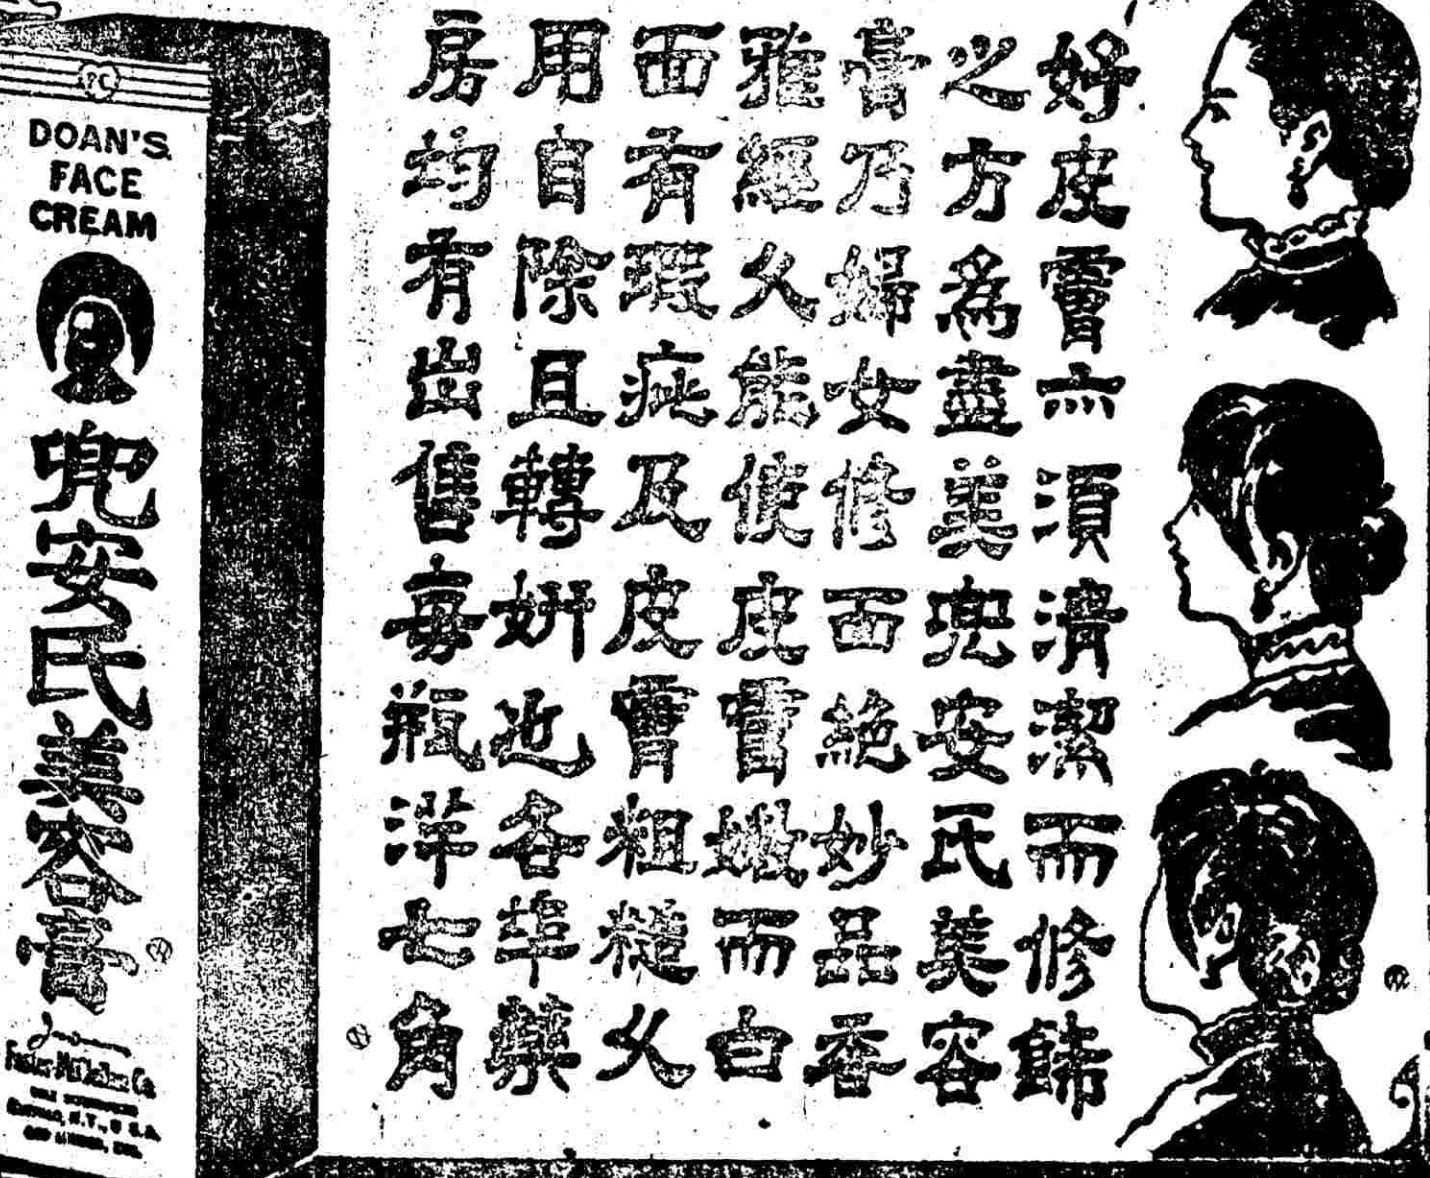 好皮膚亦須清潔而修飾
之方為盡美兜安氏美容
膏乃婦女修面絶妙品香
雅經久能使皮膚嫩而白
面有瑕疵及皮膚粗糙久
用自除且轉妍也各埠藥
房均有出售每瓶洋七角
DOAN'S
FACE
CREAM
兜安氏美容膏
Foster-McClellan Co.
BUFFALO, N.Y., U.S.A.